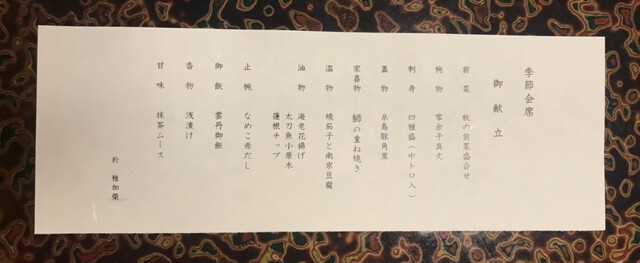 季節会席
御献立
前菜 秋の前菜盛合せ
椀物 雲金子真丈
刺身 四種盛(中トロ入)
蓋物 糸島豚角煮
家喜物 鰤の重ね焼き
温物 焼茄子と南京豆腐
油物 海老花揚げ
太刀魚小原木
蓮根チップ
止椀 なめこ赤だし
御飯 雲丹御飯
香物 浅漬け
甘味 抹茶ムース
於 雅加榮